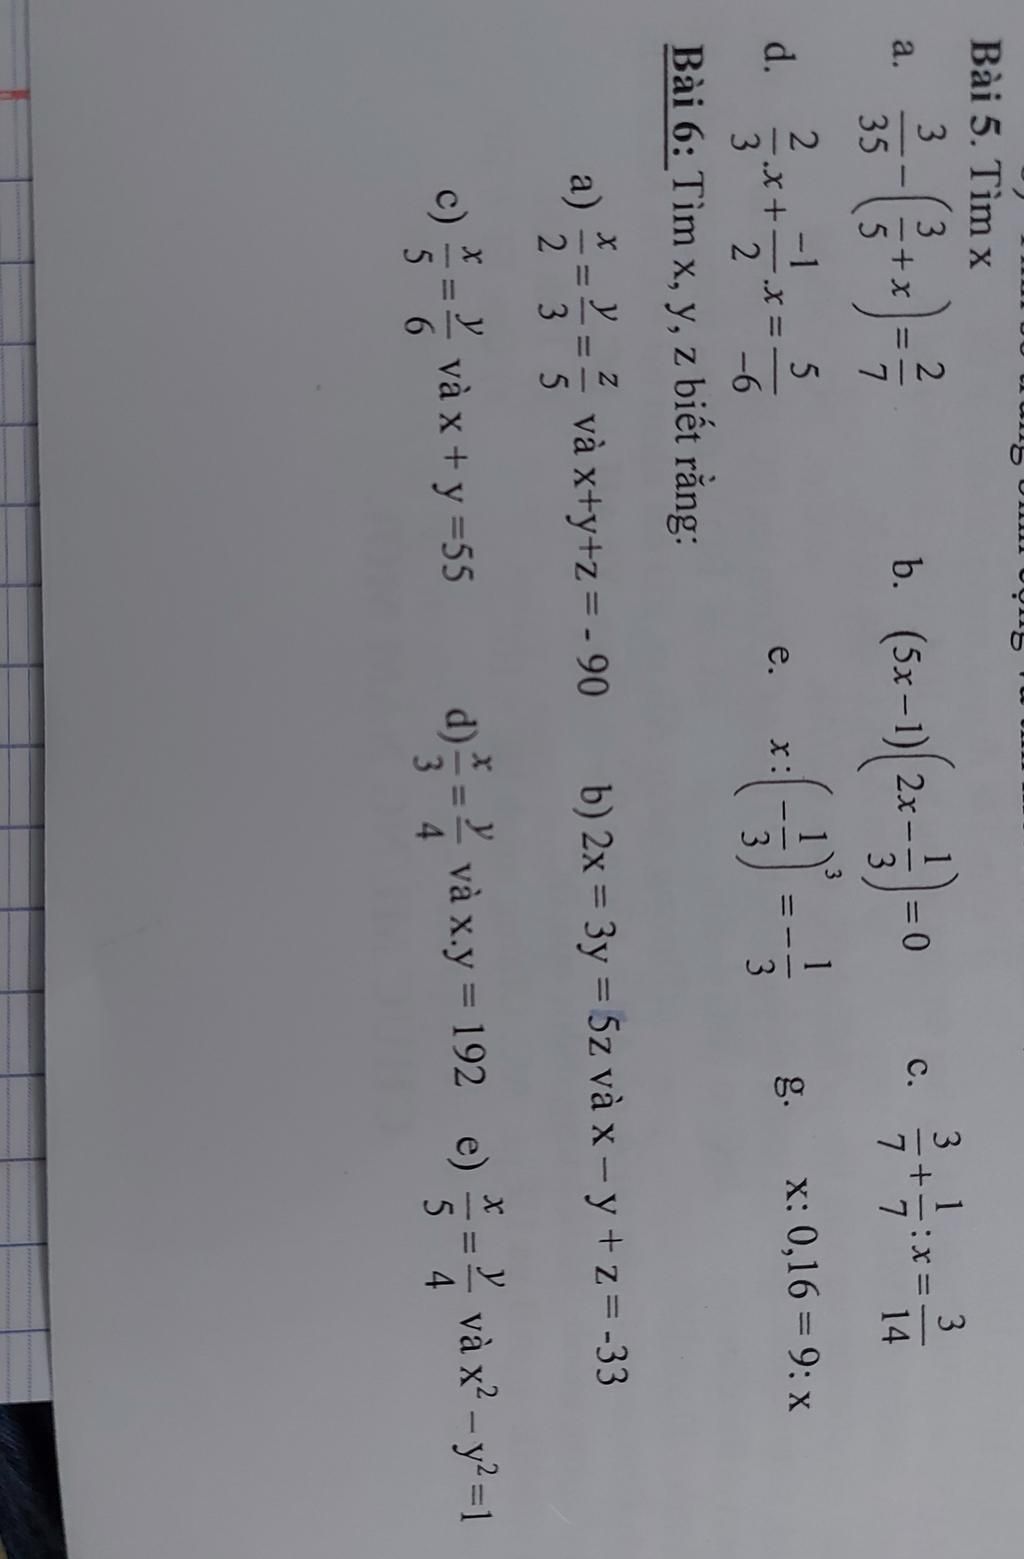 Bài 5. Tìm x
a. 3/35 − (3/5 + x) = 2/7 b. (5x − 1)(2x − 1/3) = 0 c. 3/7 + 1/7 : x = 3/14
d. 2/3 .x + −1/2 .x = 5/−6 e. x : (−1/3)³ = −1/3 g. x: 0,16 = 9: x
Bài 6: Tìm x, y, z biết rằng:
a) x/2 = y/3 = z/5 và x+y+z = - 90 b) 2x = 3y = 5z và x – y + z = -33
c) x/5 = y/6 và x + y =55 d) x/3 = y/4 và x.y = 192 e) x/5 = y/4 và x² – y² =1